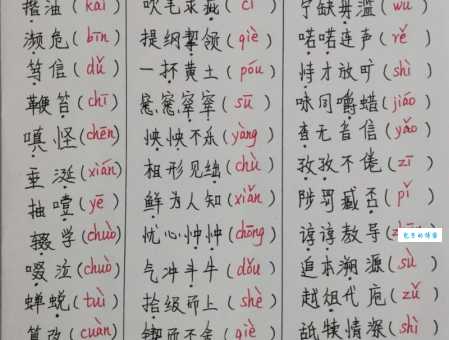 揩油(kāi) 吹毛求疵(cī) 宁缺毋滥(wú)
濒危(bīn) 提纲挈领(qiè) 喏喏连声(rě)
笃信(dǔ) 一抔黄土(póu) 恃才放旷(shì)
鞭笞(chī) 窸窸窣窣(sū) 味同嚼蜡(jiáo)
嗔怪(chēn) 怏怏不乐(yàng) 杳无音信(yǎo)
垂涎(xián) 相形见绌(chù) 孜孜不倦(zī)
抽噎(yē) 鲜为人知(xiǎn) 陟罚臧否(pǐ)
辍学(chuò) 忧心忡忡(chōng) 谆谆教导(
啜泣(chuò) 气冲斗牛(dǒu) 追本溯源(sù)
蝉蜕(tuì) 拾级而上(shè) 越俎代庖(zǔ)
篡改(cuàn) 锲而不舍(qiè) 舐犊情深(shì)